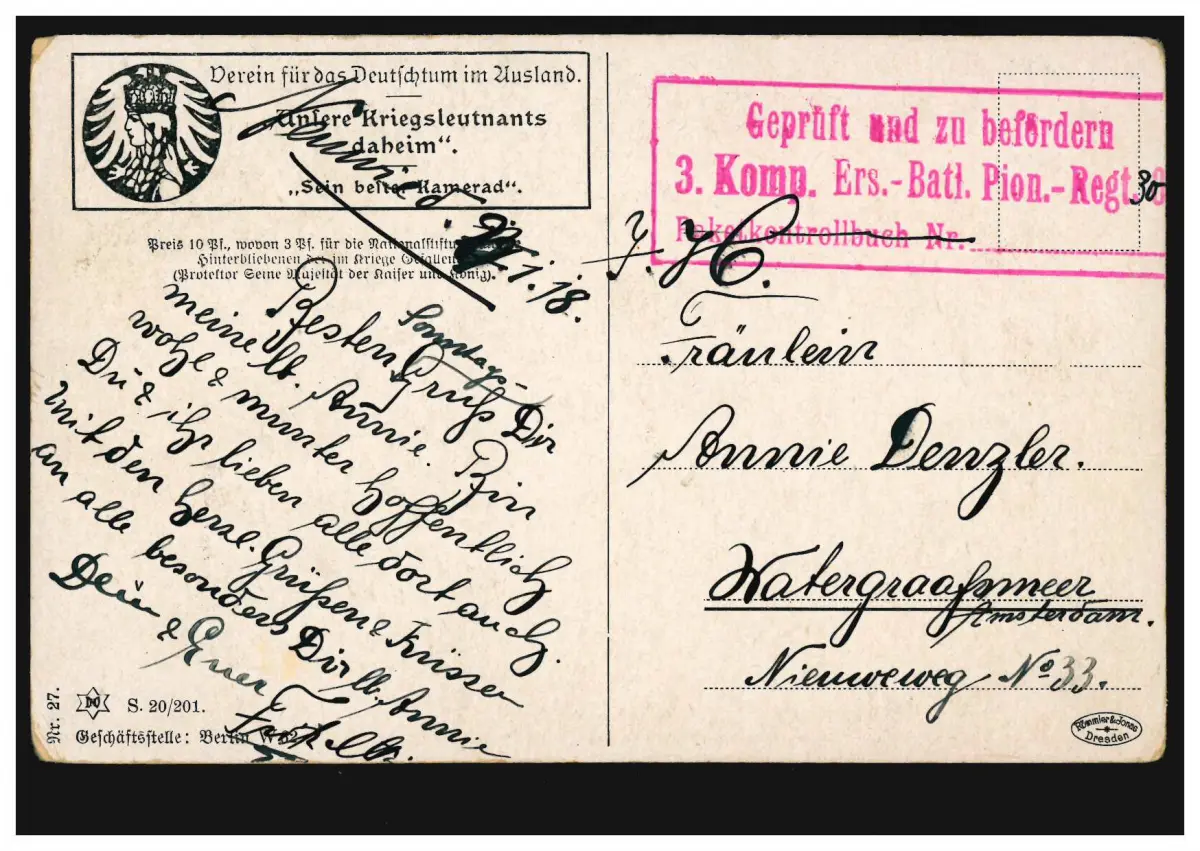 Verein für das Deutschtum im Ausland.
„Unsere Kriegsleutnants
daheim“.
„Sein bester Kamerad“.
Preis 10 Pf., wovon 3 Pf. für die
Hinterbliebenen der im Kriege
(Protektor Seine Majestät der Kaiser und König).
1.18.
Sonntags-
Besten Gruß Dir
meine lb. Annie. Bin
wohl & munter hoffentlich
Du & ihr lieben alle dort auch.
Mit den herzl. Grüßen & Küssen
an alle besonders Dir lb. Annie
Dein & Euer
Nr. 27.
DO
S. 20/201.
Geschäftsstelle: Berlin W 62
Geprüft und zu befördern
3. Komp. Ers.-Batl. Pion.-Regt. 30
Paketkontrollbuch Nr.
Fräulein
Annie Denzler.
Watergraafsmeer
Amsterdam.
Nieuweweg No 33.
Römmler & Jonas
Dresden